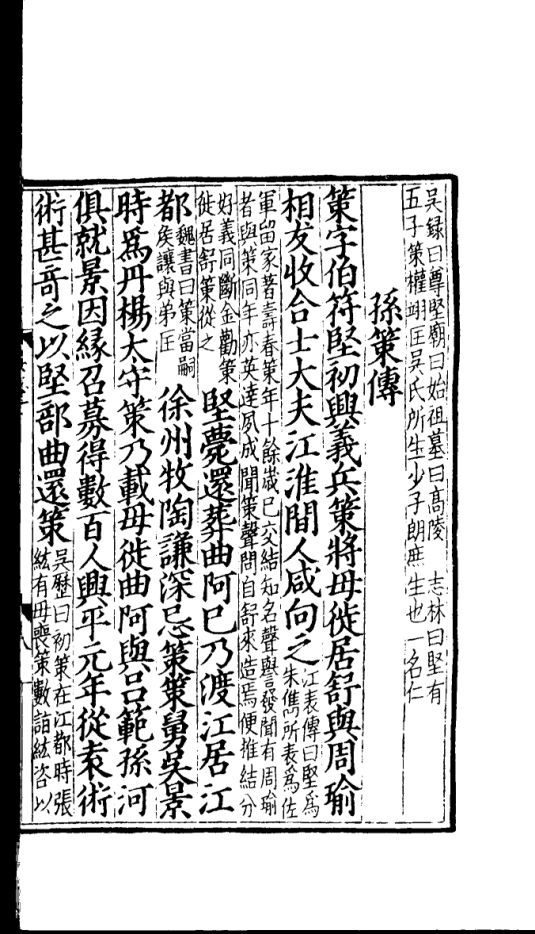 吳錄曰尊堅廟曰始祖墓曰髙陵　志林曰堅有
五子策權翊匡吳氏所生少子朗庶生也一名仁
孫策傳
策字伯符堅初興義兵策將母徙居舒與周瑜
相友收合士大夫江淮間人咸向之
江表傳曰堅爲
朱儁所表爲佐
軍留家著壽春策年十餘歲已交結知名聲譽發聞有周瑜
者與策同年亦英達夙成聞策聲問自舒來造焉便推結分
好義同斷金勸策
徙居舒策從之
堅薨還葬曲阿已乃渡江居江
都
魏書曰策當嗣
矦讓與弟匡
徐州牧陶謙深忌策策舅吳景
時爲丹楊太守策乃載母徙曲阿與吕範孫河
俱就景因緣召募得數百人興平元年從袁術
術甚奇之以堅部曲還策
吳歷曰初策在江都時張
紘有母喪策數詣紘咨以